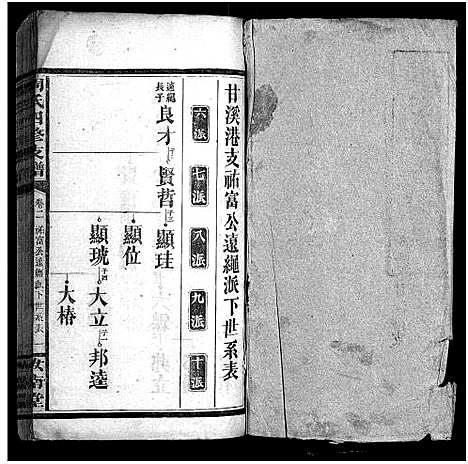 甘溪港支祐富公遠繩派下世系表
六派
七派
八派
九派
十派
遠繩長子
良才
賢哲
子三
顯珪
顯位
顯琥
子四
大立
子一
邦達
大椿
氏四修支譜
卷二
祐富公遠繩派下世系表